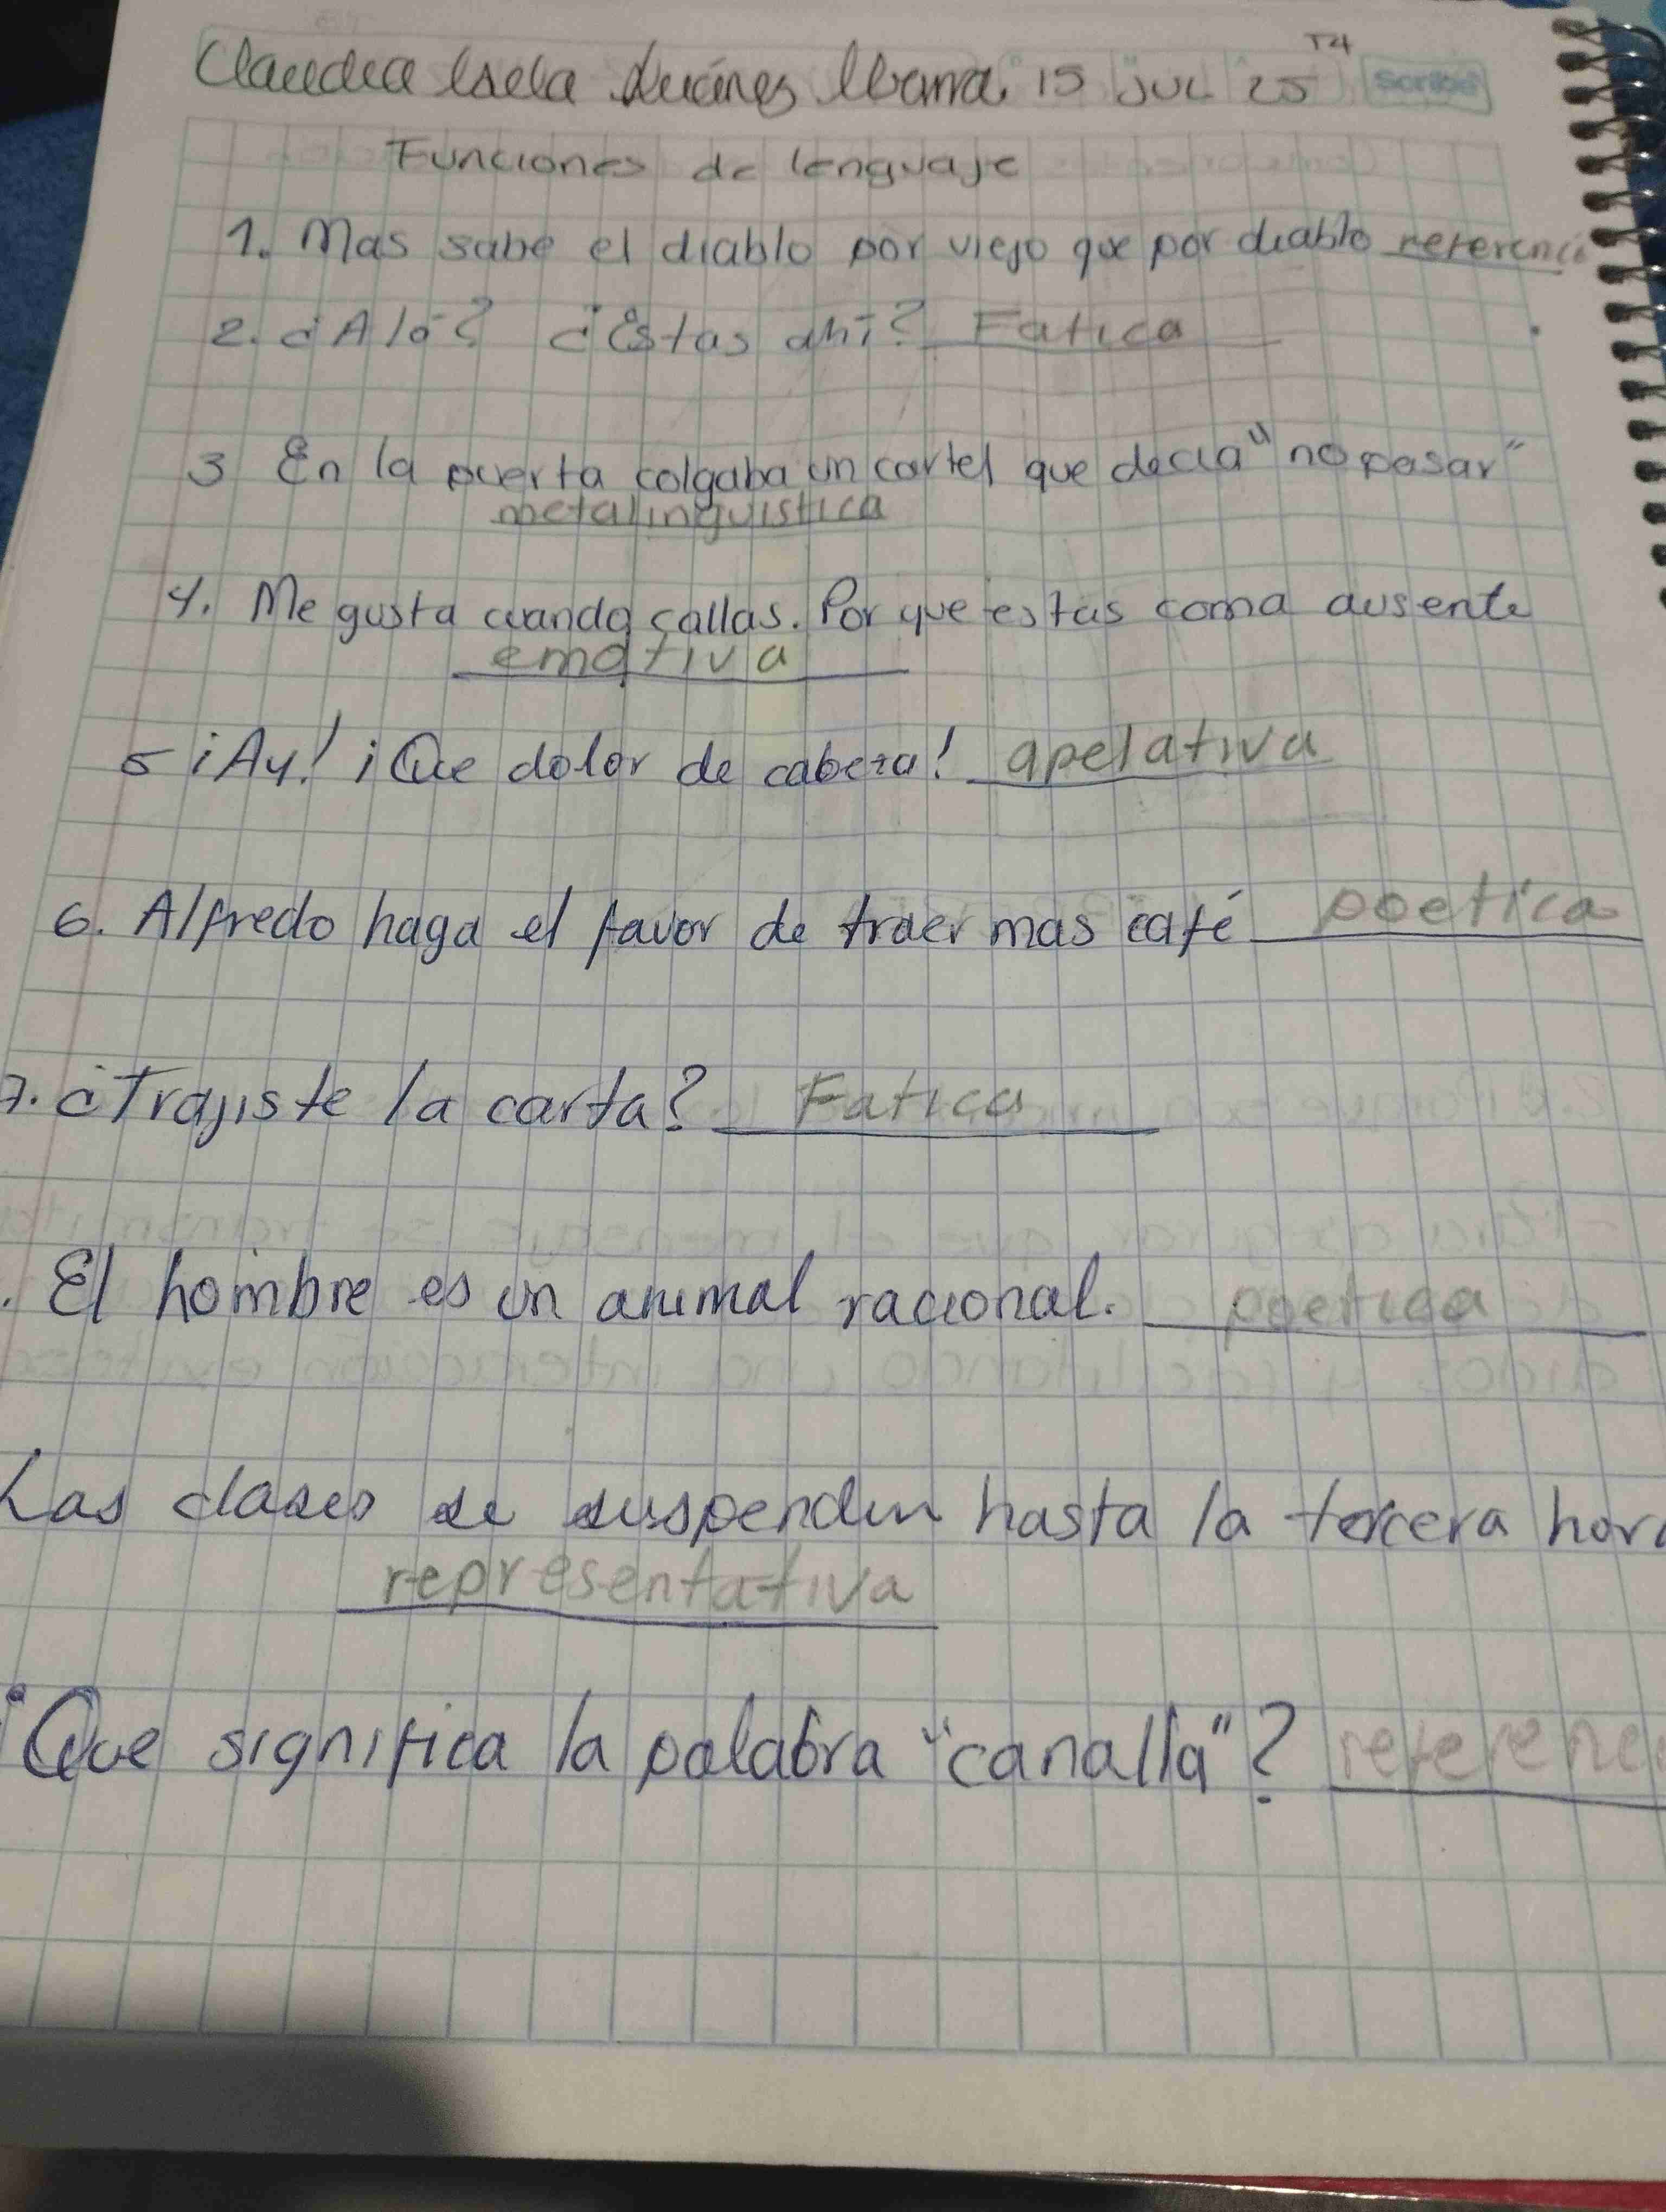 Claudia Isela 15 JUL 25 T4 Scribe
Funciones de lenguaje
1. Mas sabe el diablo por viejo que por diablo referenci
2. ¿Aló? ¿Estas ahí? Fatica
3 En la puerta colgaba un cartel que decia "no pasar"
metalinguistica
4. Me gusta cuando callas. Por que estas como ausente
emotiva
5 ¡Ay! ¡Que dolor de cabeza! apelativa
6. Alfredo haga el favor de traer mas café poetica
7. ¿Trajiste la carta? Fatica
. El hombre es un animal racional. poetica
Las clases se suspenden hasta la tercera hora
representativa
¿Que significa la palabra "canalla"? referenci